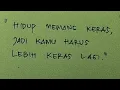 "HIDUP MEMANG KERAS,
JADI KAMU HARUS
LEBIH KERAS LAGI."